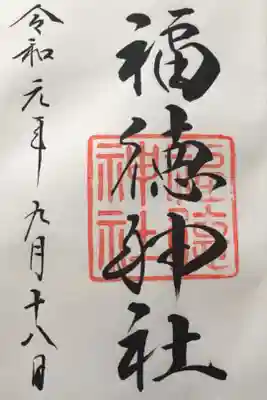 福徳神社
令和元年九月十八日
福徳
神社